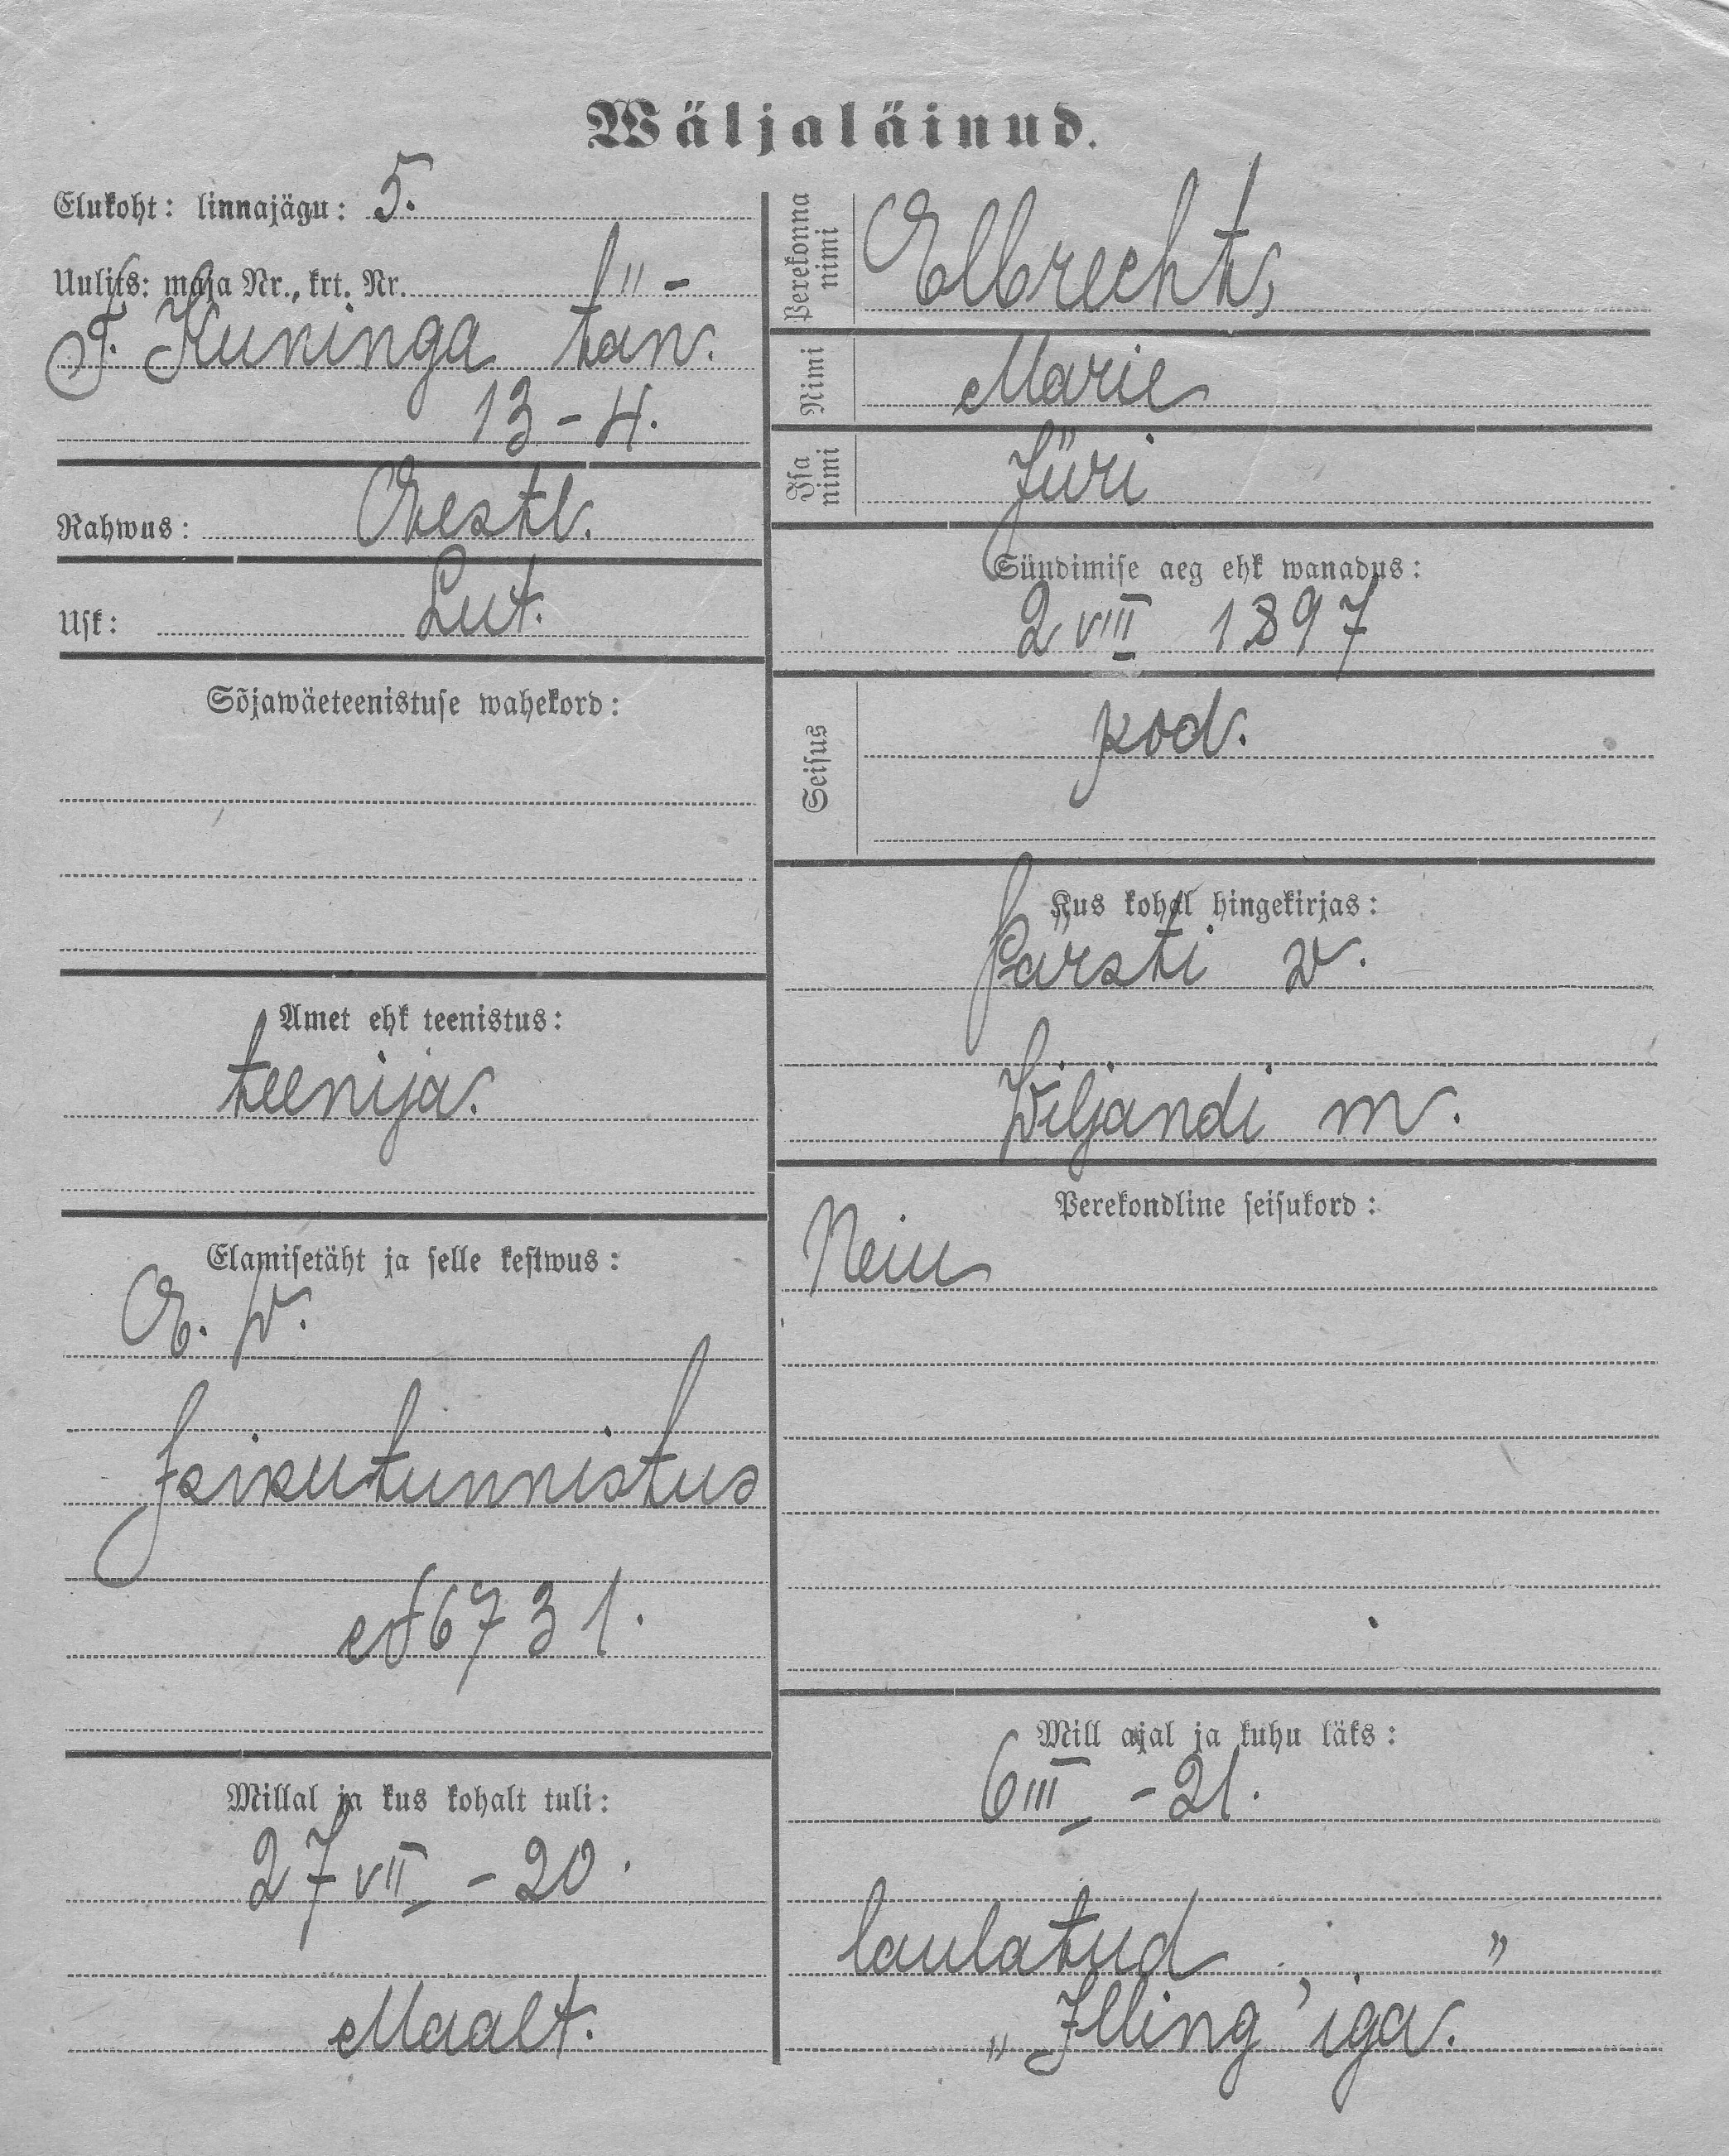 Wäljaläinud.
Elukoht: linnajägu: 5.
Uulits: maja Nr., krt. Nr.
T. Kuninga tän.
13-4.
Rahwus: Eestl.
Usk: Lut.
Sõjawäeteenistuse wahekord:
Amet ehk teenistus:
teenija.
Elamisetäht ja selle kestwus:
E. W.
Isikutunnistus
№ 6731.
Millal ja kus kohalt tuli:
27 VII - 20.
Maalt.
Perekonna nimi Elbrecht,
Nimi Marie
Isa nimi Jüri
Sündimise aeg ehk wanadus:
2 VIII 1897
Seisus kod.
Kus kohal hingekirjas:
Pärsti w.
Wiljandi m.
Perekondline seisukord:
Neiu
Mill ajal ja kuhu läks:
6 III - 21.
laulatud
„Illing'iga.”